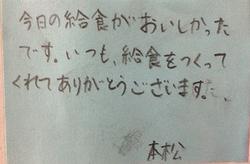 今日の給食がおいしかった
です。いつも、給食をつくって
くれてありがとうございます。
本松